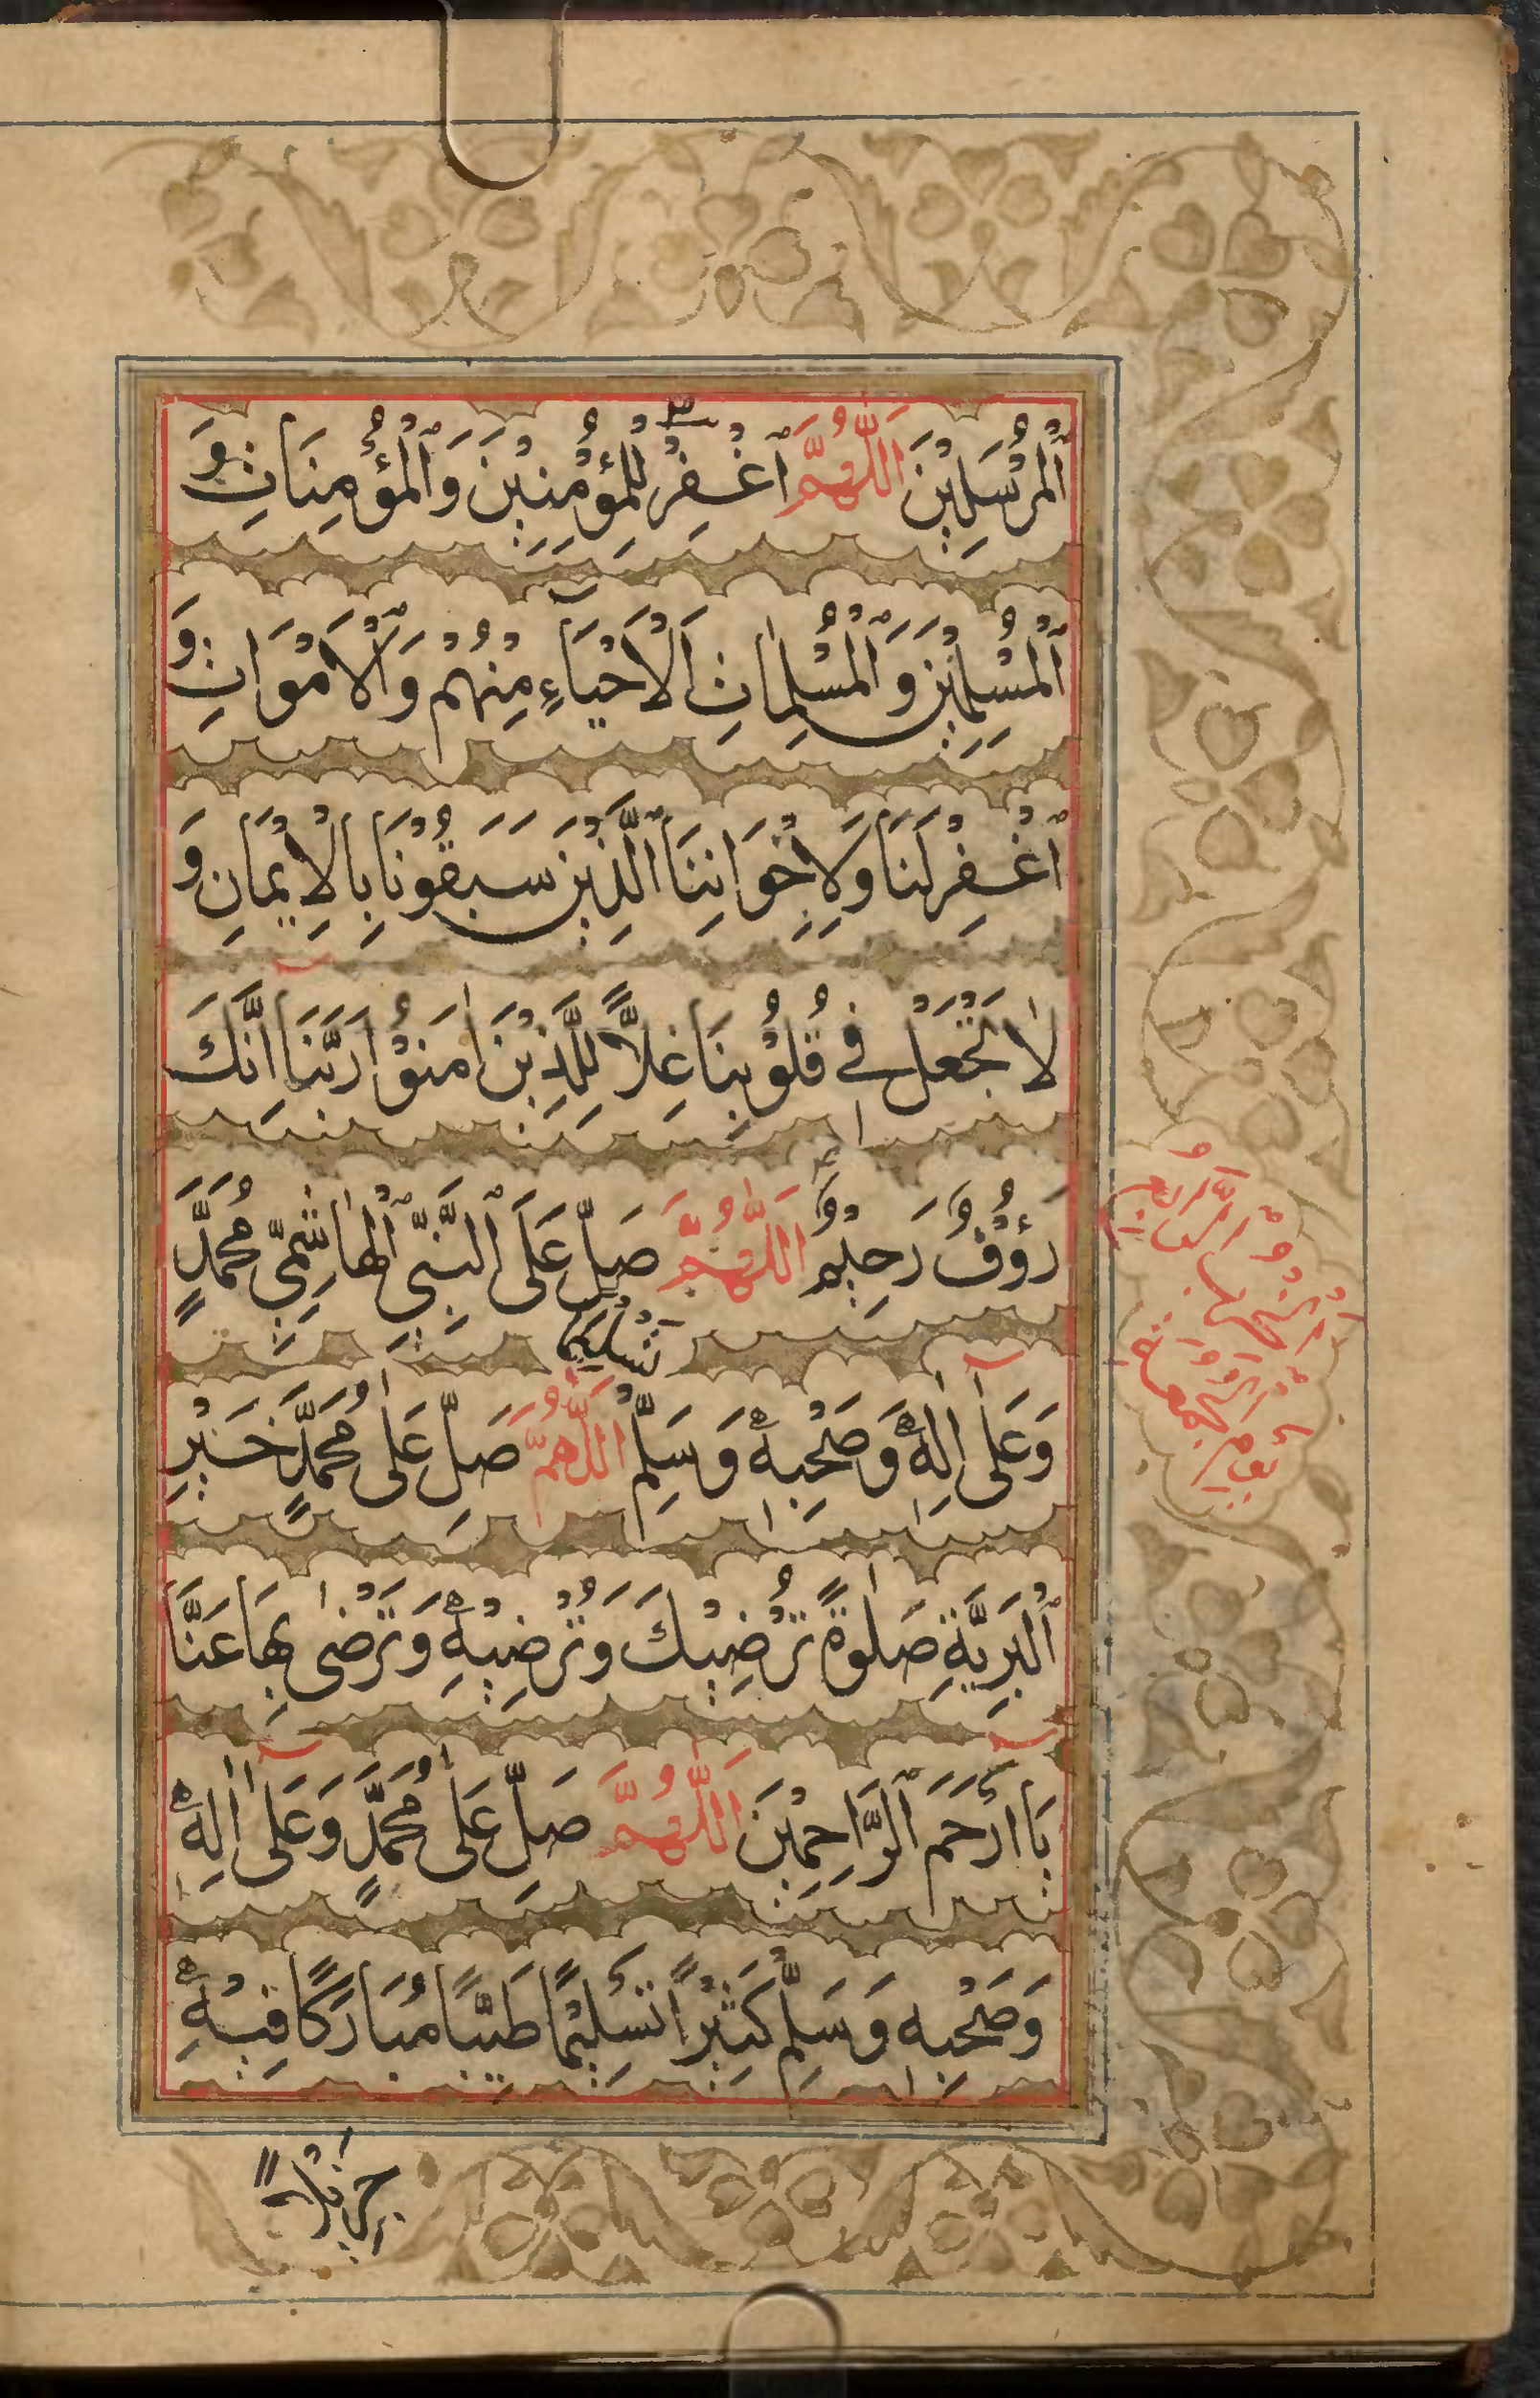 اَلْمُرْسَلِيْنَ اَللّٰهُمَّ اغْفِرْ لِلْمُؤْمِنِيْنَ وَالْمُؤْمِنَاتِ وَ
الْمُسْلِمِيْنَ وَالْمُسْلِمَاتِ اَلْاَحْيَاءِ مِنْهُمْ وَالْاَمْوَاتِ وَ
اغْفِرْ لَنَا وَلِاِخْوَانِنَا الَّذِيْنَ سَبَقُوْنَا بِالْاِيْمَانِ وَ
لَا تَجْعَلْ فِي قُلُوْبِنَا غِلًّا لِلَّذِيْنَ اٰمَنُوْا رَبَّنَا اِنَّكَ
رَؤُفٌ رَحِيْمٌ اَللّٰهُمَّ صَلِّ عَلَى النَّبِيِّ الْهَاشِمِيِّ مُحَمَّدٍ
وَعَلٰى اٰلِهٖ وَصَحْبِهٖ وَسَلِّمْ تَسْلِيْمًا اَللّٰهُمَّ صَلِّ عَلٰى مُحَمَّدٍ خَيْرِ
الْبَرِيَّةِ صَلٰوةً تُرْضِيْكَ وَتُرْضِيْهِ وَتَرْضٰى بِهَا عَنَّا
يَا اَرْحَمَ الرَّاحِمِيْنَ اَللّٰهُمَّ صَلِّ عَلٰى مُحَمَّدٍ وَعَلٰى اٰلِهٖ
وَصَحْبِهٖ وَسَلِّمْ كَثِيْرًا تَسْلِيْمًا طَيِّبًا مُبَارَكًا فِيْهِ
جَزِيْلًا
يوم الجمعة